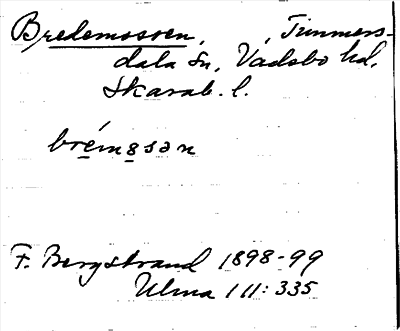 Bredemossen, , Timmers-
dala sn, Vadsbo hd,
Skarab. l.
brémosən
F. Bergstrand 1898-99
Ulma 111:335